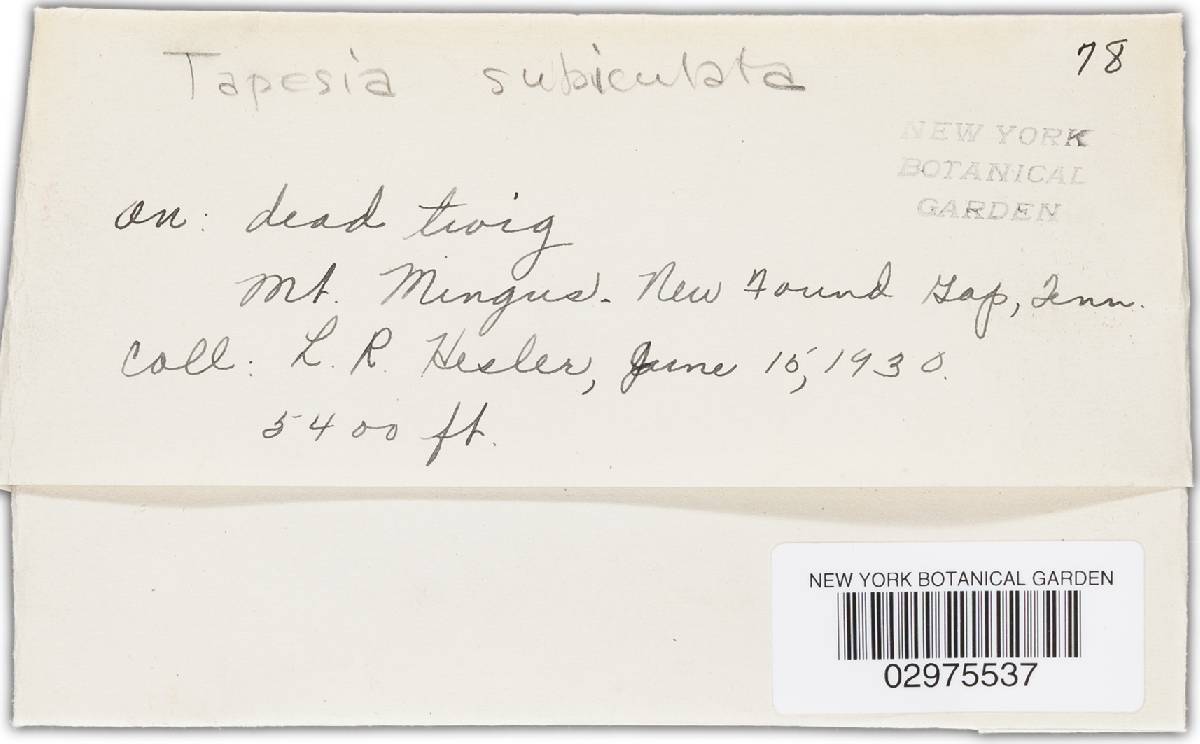 Tapesia subiculata
78
NEW YORK
BOTANICAL
GARDEN
on: dead twig
Mt. Mingus - New Found Gap, Tenn.
Coll: L. R. Hesler, June 15, 1930.
5400 ft.
NEW YORK BOTANICAL GARDEN
02975537